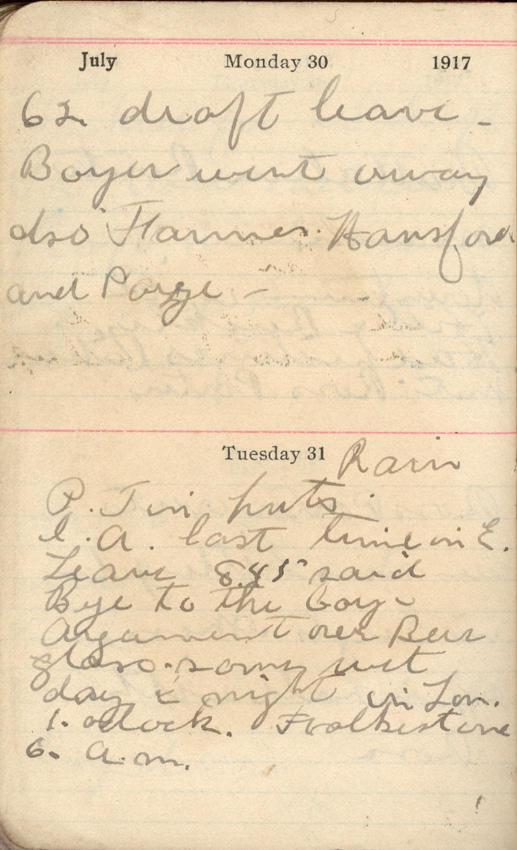 July Monday 30 1917
62 draft leave -
Boyer went away
also Farmer Hansford
and Paige -
Tuesday 31 Rain
P. T in huts.
l. a. last time in E.
Leave 8.45 said
Bye to the boys
Argument over Beer
glass. wet
day & night in Lon.
1. oclock. Folkestone
6. a.m.